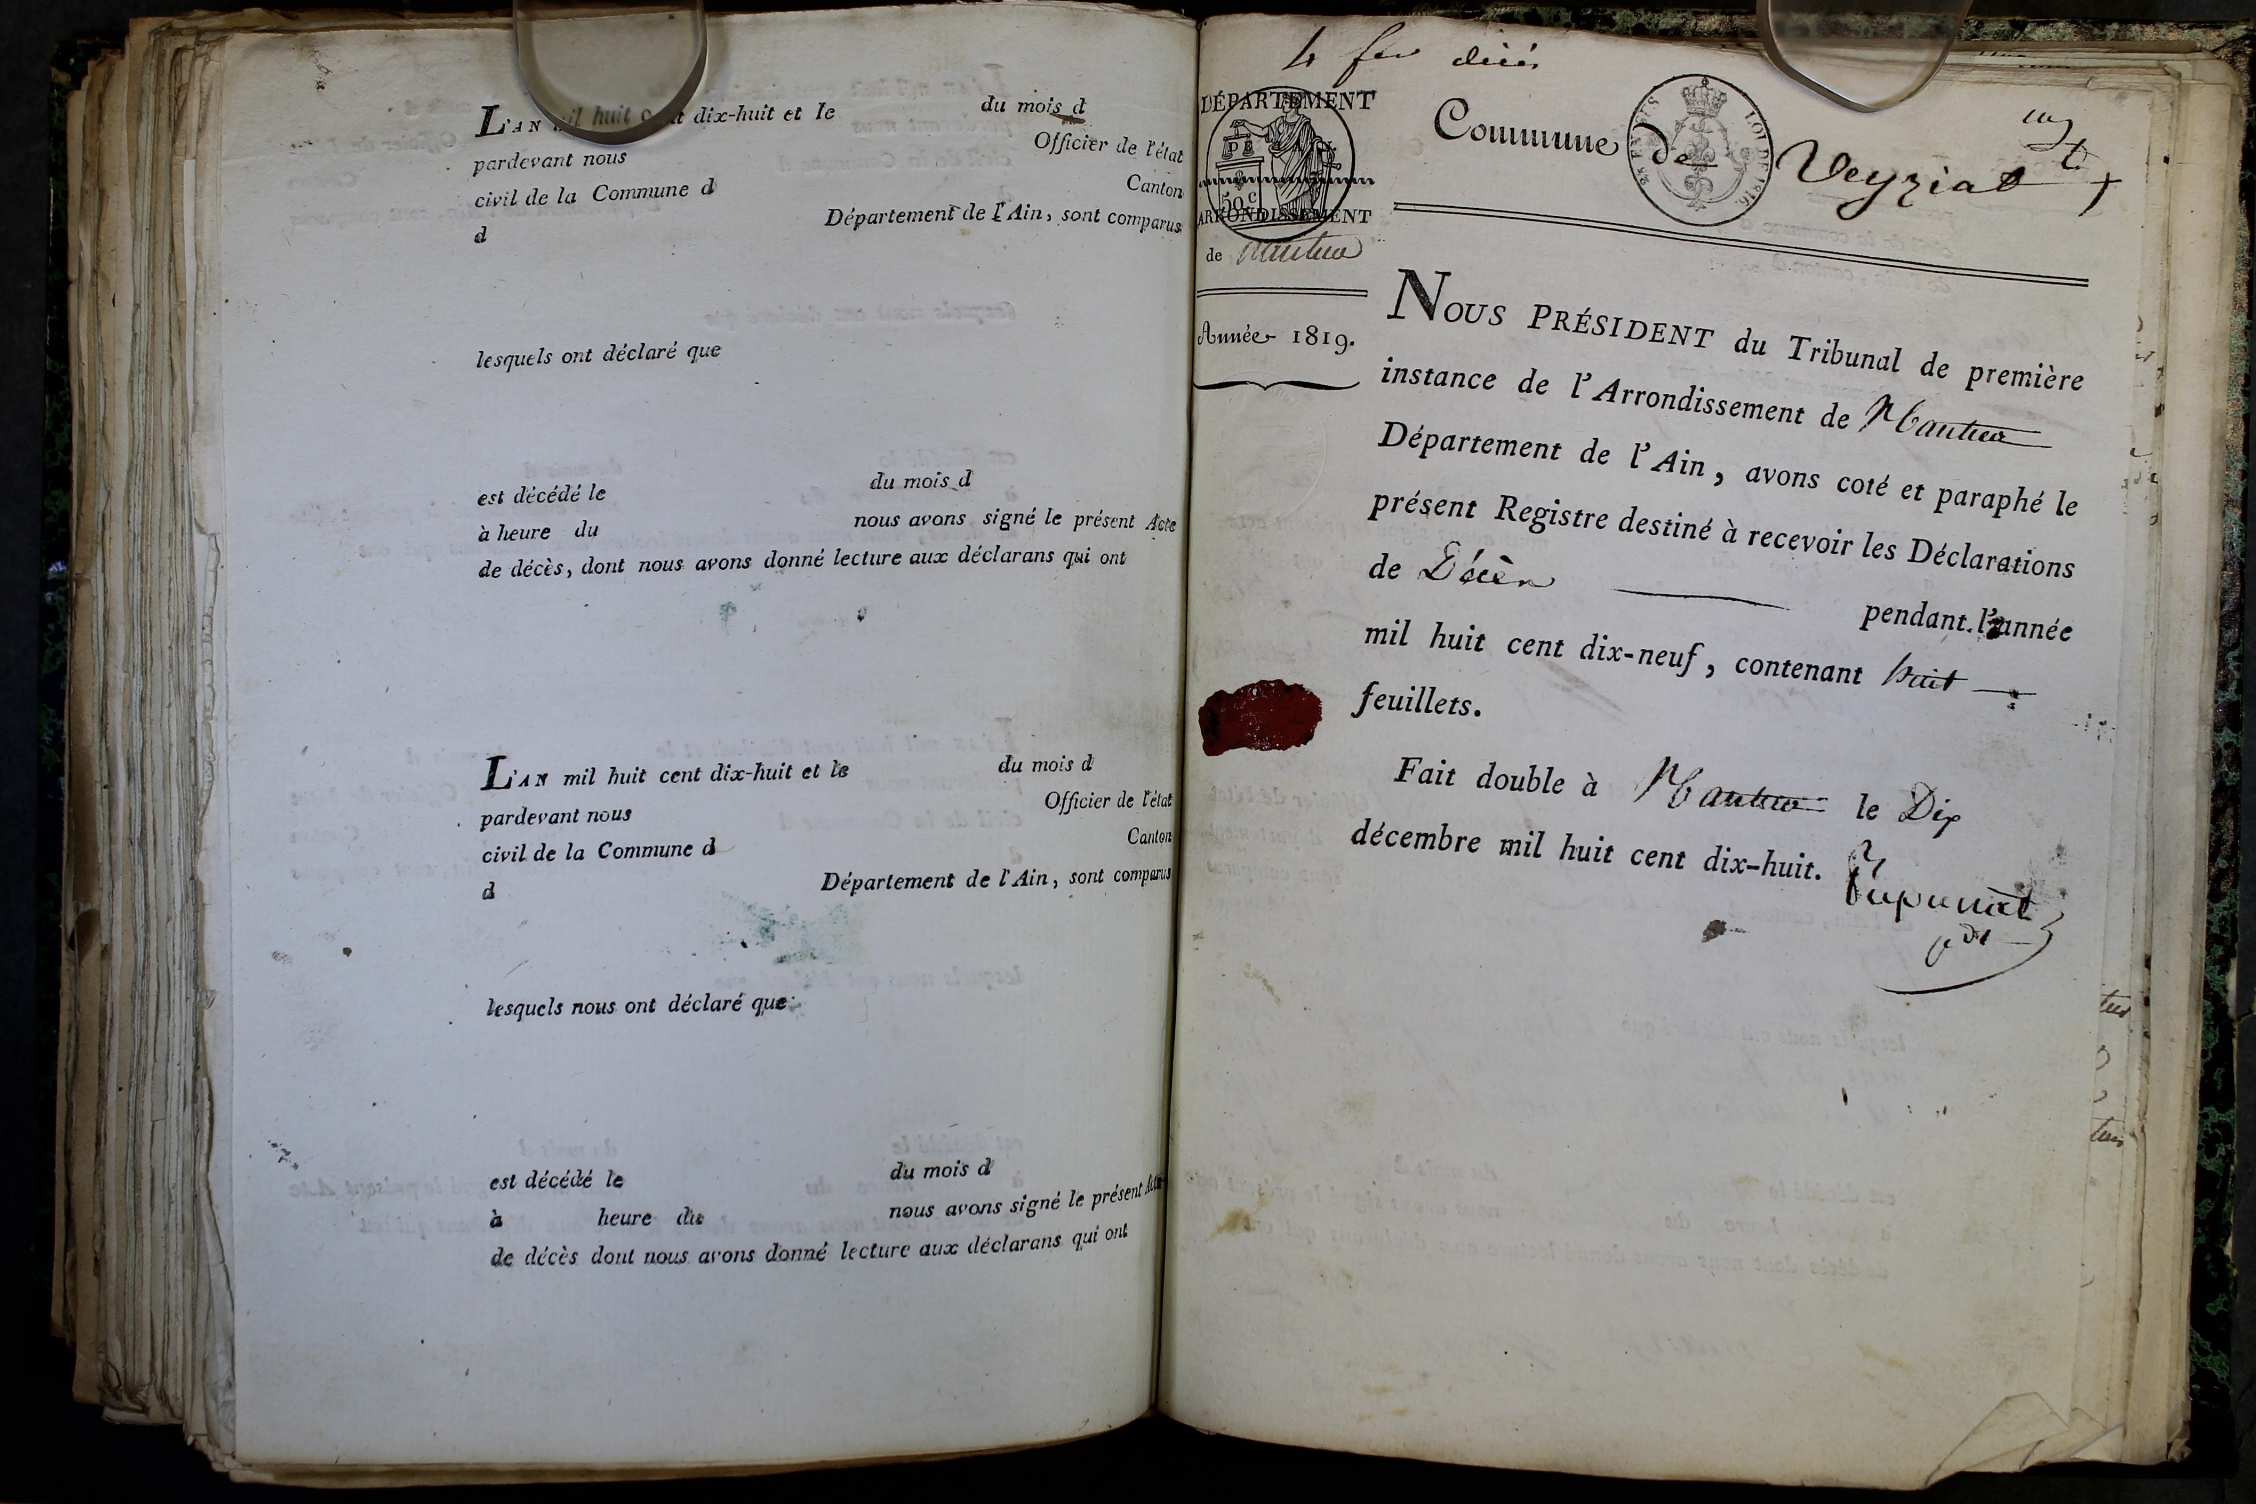 L'AN mil huit cent dix-huit et le du mois d
pardevant nous Officier de l'état
civil de la Commune d Canton
d Département de l'Ain, sont comparus
lesquels ont déclaré que
est décédé le du mois d
à heure du nous avons signé le présent Acte
de décès, dont nous avons donné lecture aux déclarans qui ont
L'AN mil huit cent dix-huit et le du mois d
pardevant nous Officier de l'état
civil de la Commune d Canton
d Département de l'Ain, sont comparus
lesquels nous ont déclaré que
est décédé le du mois d
à heure du nous avons signé le présent Acte
de décès dont nous avons donné lecture aux déclarans qui ont
4
DÉPARTEMENT
50 c
ARRONDISSEMENT
de Nantua
Année 1819.
Commune de Veyziat
LOI DE 1816
NOUS PRÉSIDENT du Tribunal de première
instance de l'Arrondissement de Nantua
Département de l'Ain, avons coté et paraphé le
présent Registre destiné à recevoir les Déclarations
de Décès pendant l'année
mil huit cent dix-neuf, contenant huit
feuillets.
Fait double à Nantua le Dix
décembre mil huit cent dix-huit.